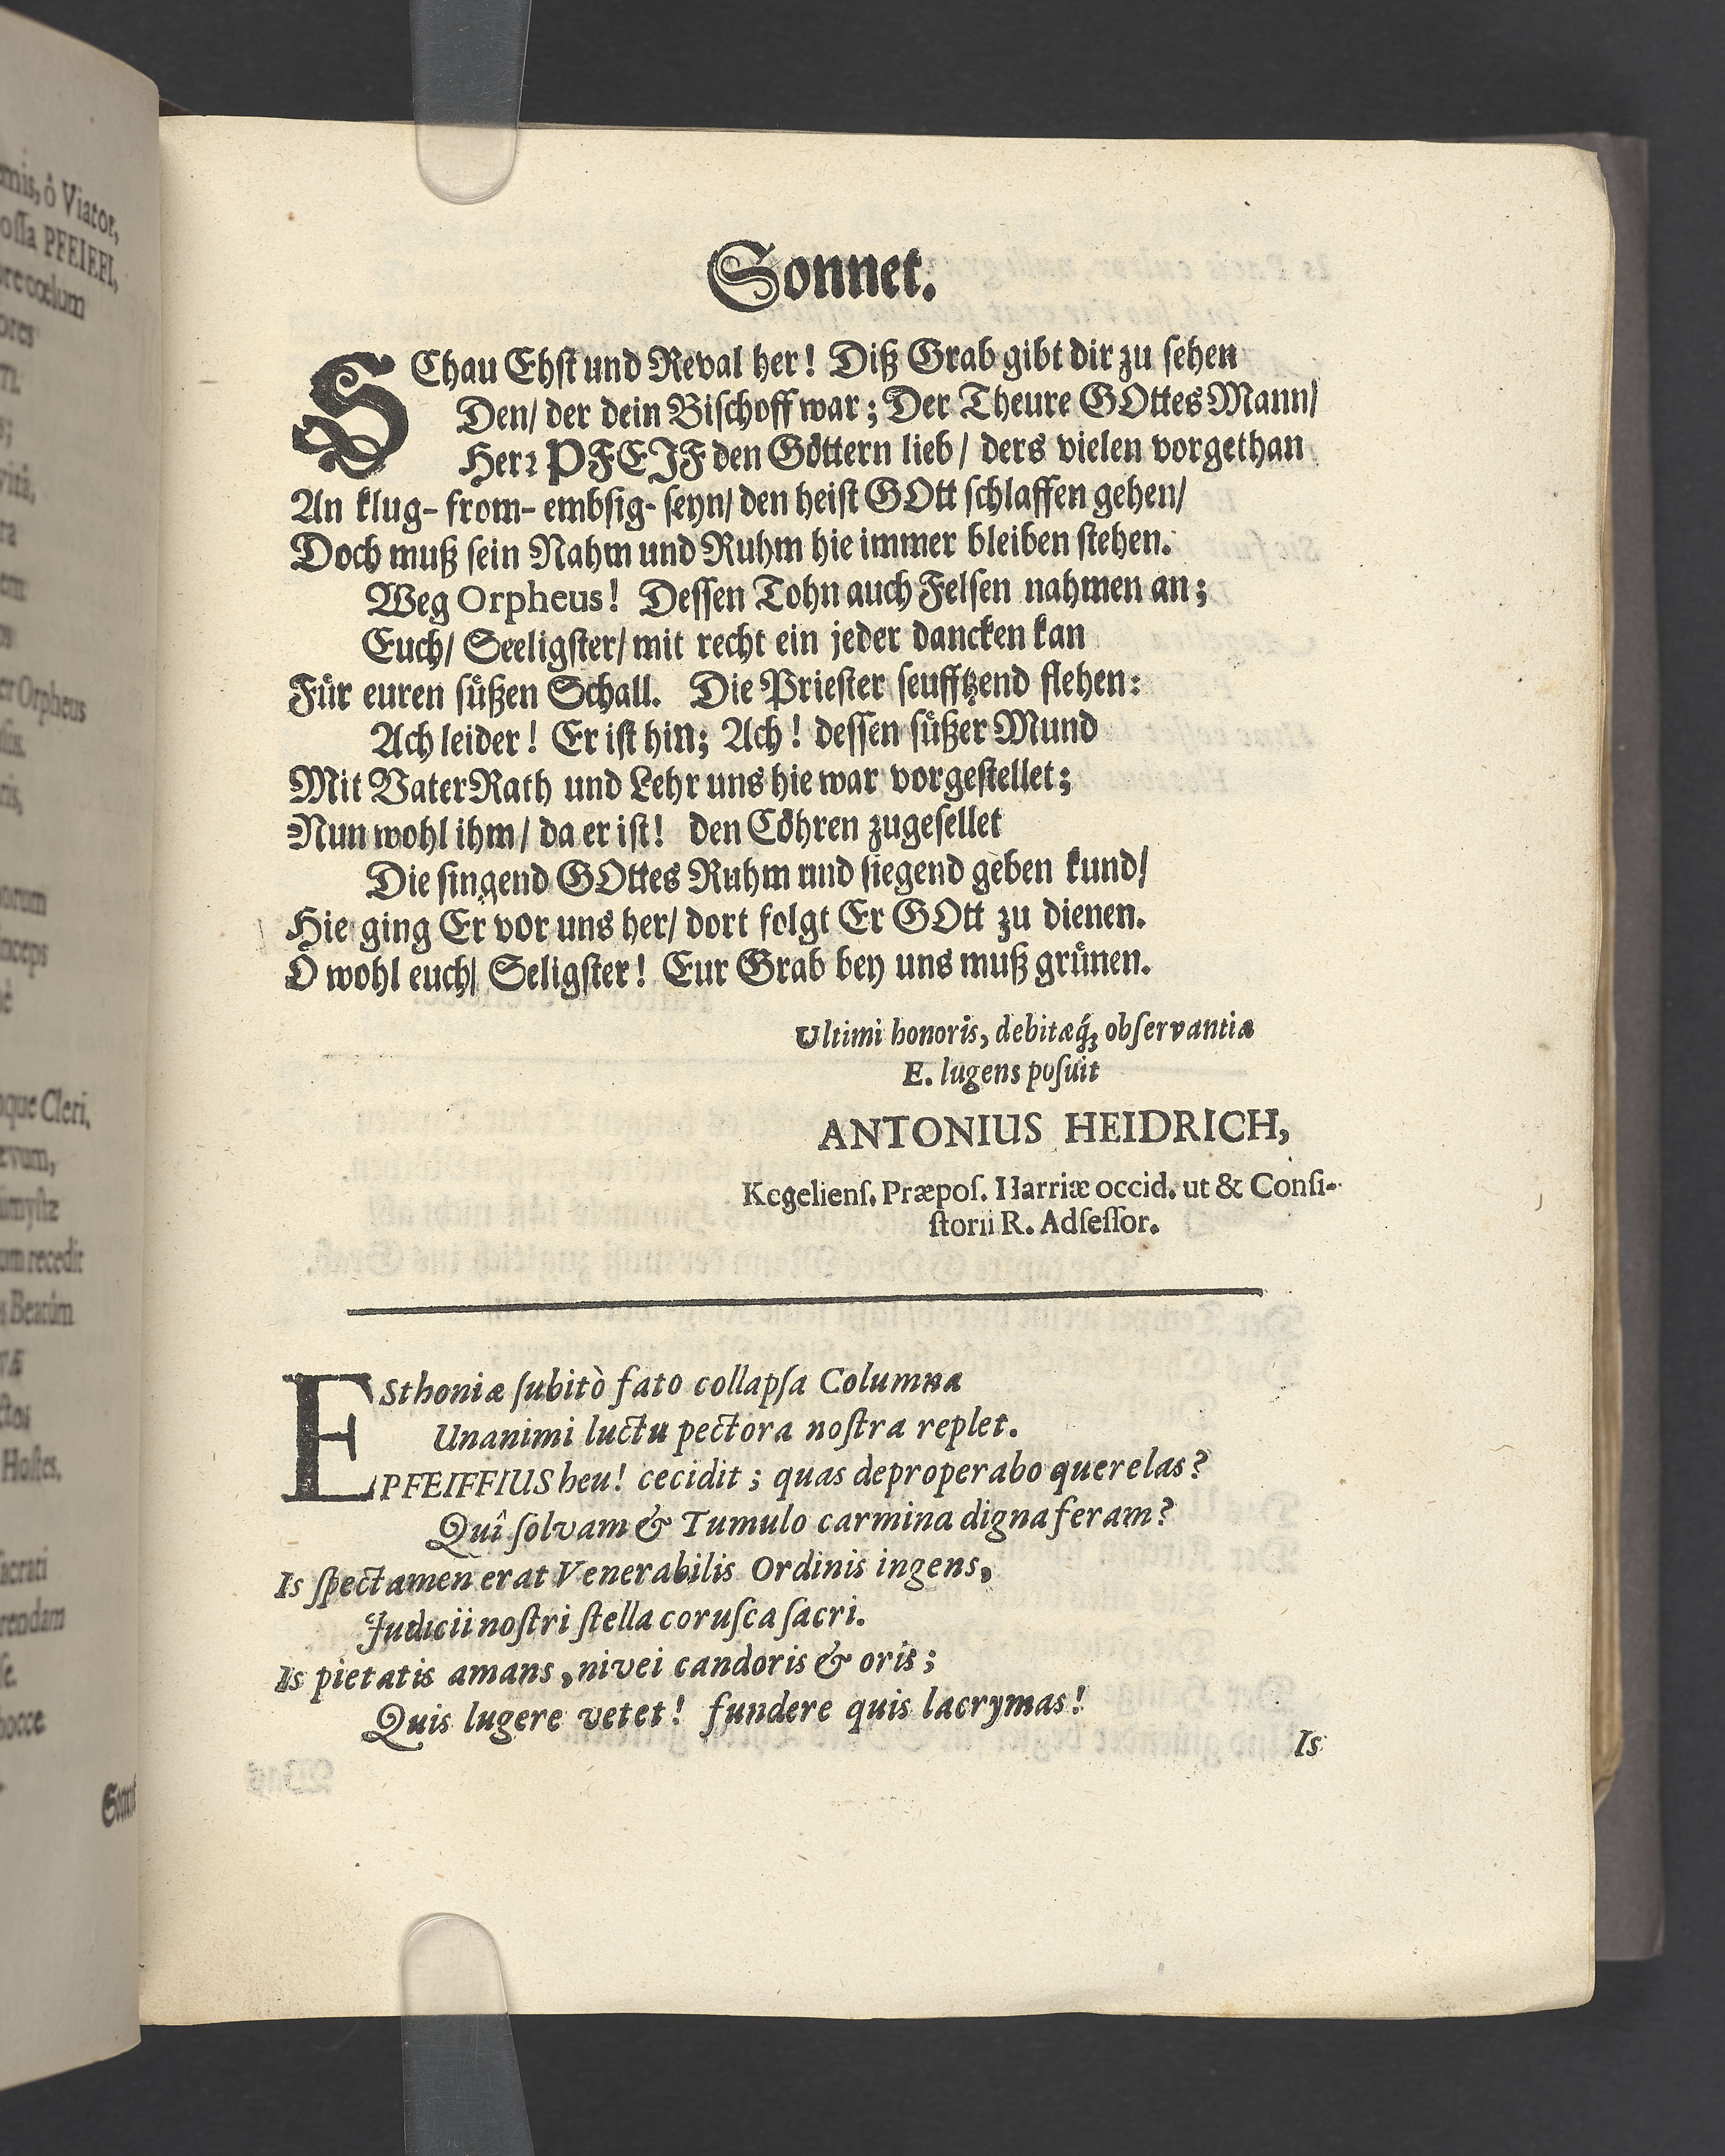 emis, ô Viator,
ossa PFEIFFI,
ore cœlum
ores
er Orpheus
orum
inceps
oque Cleri,
ævum,
um recedit
s Beatum
Hostes,
sacrati
rendam
hocce
Sonnet.
SChau Ehst und Reval her! Diß Grab gibt dir zu sehen
Den/ der dein Bischoff war; Der Theure GOttes Mann/
Herr PFEIF den Göttern lieb/ ders vielen vorgethan
An klug- from- embsig- seyn/ den heist GOtt schlaffen gehen/
Doch muß sein Nahm und Ruhm hie immer bleiben stehen.
Weg Orpheus! Dessen Tohn auch Felsen nahmen an;
Euch/ Seeligster/ mit recht ein jeder dancken kan
Für euren süßen Schall. Die Priester seufftzend flehen:
Ach leider! Er ist hin; Ach! dessen süßer Mund
Mit Vater Rath und Lehr uns hie war vorgestellet;
Nun wohl ihm/ da er ist! den Cöhren zugesellet
Die singend GOttes Ruhm und siegend geben kund/
Hie ging Er vor uns her/ dort folgt Er GOtt zu dienen.
O wohl euch/ Seligster! Eur Grab bey uns muß grünen.
Ultimi honoris, debitæq́; observantiæ
E. lugens posuit
ANTONIUS HEIDRICH,
Kegeliens. Præpos. Harriæ occid. ut & Consi-
storii R. Adsessor.
ESthoniæ subitò fato collapsa Columna
Unanimi luctu pectora nostra replet.
PFEIFFIUS heu! cecidit; quas deproperabo querelas?
Quî solvam & Tumulo carmina digna feram?
Is spectamen erat Venerabilis Ordinis ingens,
Judicii nostri stella corusca sacri.
Is pietatis amans, nivei candoris & oris;
Quis lugere vetet! fundere quis lacrymas!
Is